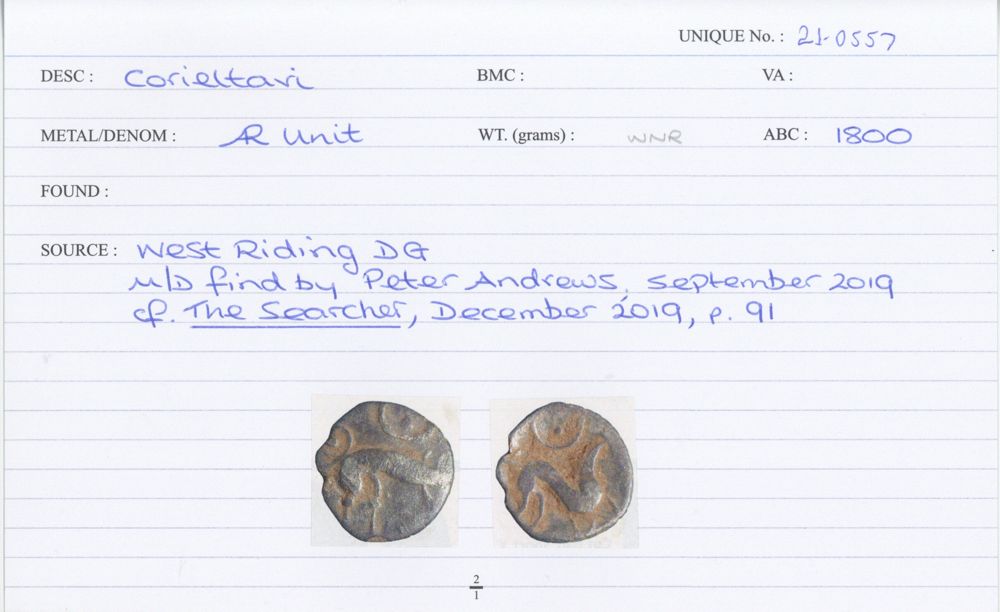 UNIQUE No. : 21-0557
DESC : Corieltavi BMC : VA :
METAL/DENOM : AR Unit WT. (grams) : WNR ABC : 1800
FOUND :
SOURCE : West Riding DG
M/D find by Peter Andrews, September 2019
cf. The Searcher, December 2019, p. 91
2
1